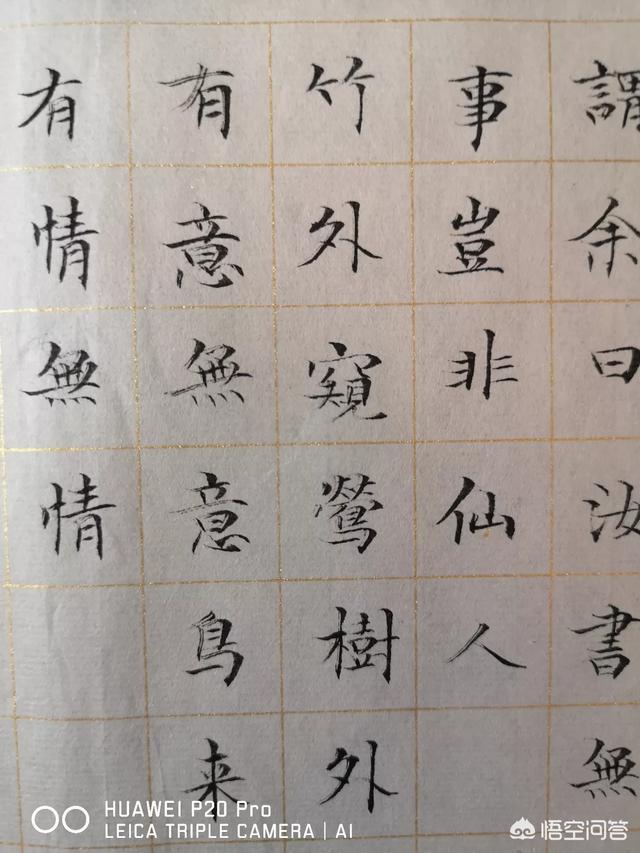 謂余曰汝書無
事豈非仙人
竹外窺鶯樹外
有意無意鳥来
有情無情
HUAWEI P20 Pro
LEICA TRIPLE CAMERA | AI
悟空问答